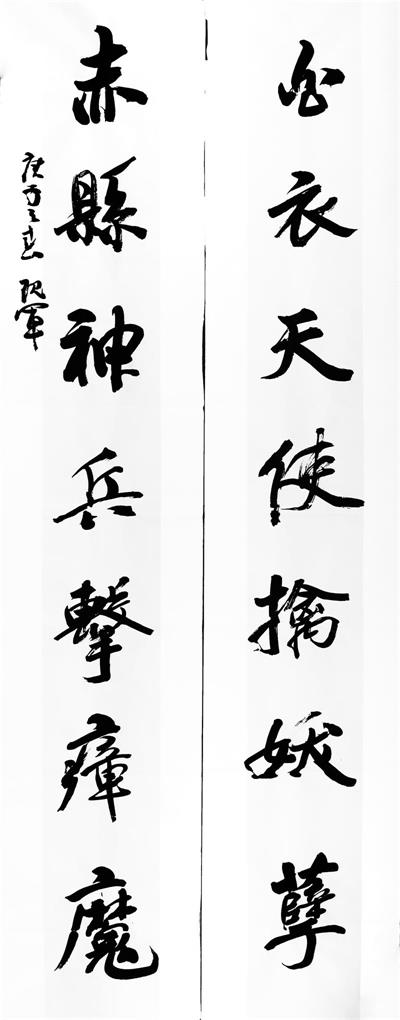 白衣天使擒妖孽
赤縣神兵擊瘴魔
庚子之春 軍